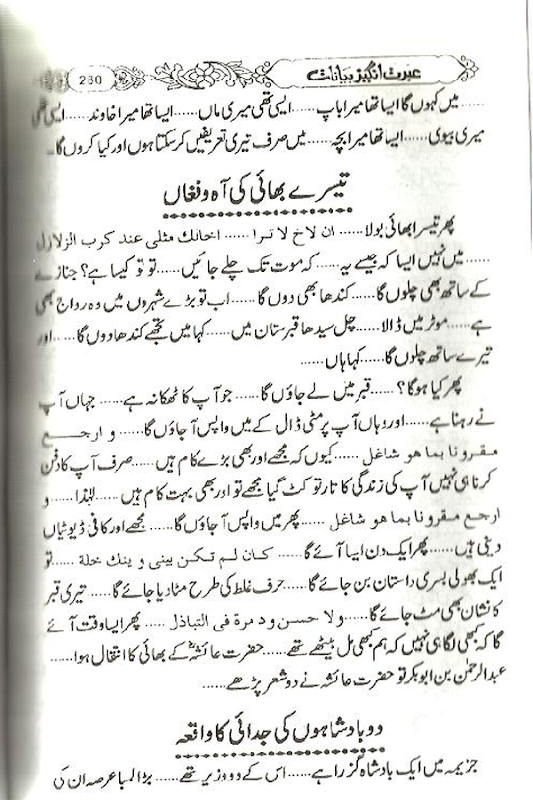 عبرت انگیز بیانات 230
...... میں کہوں گا ایسا تھا میرا باپ...... ایسی تھی میری ماں...... ایسا تھا میرا خاوند...... ایسی تھی
میری بیوی...... ایسا تھا میرا بچہ...... میں صرف تیری تعریفیں کر سکتا ہوں اور کیا کروں گا۔
تیسرے بھائی کی آہ و فغاں
پھر تیسرا بھائی بولا...... ان لاخ لا ترا...... اخالك مثلى عند كرب الزلازل
...... میں نہیں ایسا کہ جیسے یہ...... کہ موت تک چلے جائیں...... تو تو کیسا ہے؟ جنازے
کے ساتھ بھی چلوں گا...... کندھا بھی دوں گا...... اب تو بڑے شہروں میں وہ رواج بھی
ہے...... موٹر میں ڈالا...... چل سیدھا قبرستان میں...... کہا میں تجھے کندھا دوں گا...... اور
تیرے ساتھ چلوں گا...... کہا ہاں......
پھر کیا ہوگا؟...... قبر میں لے جاؤں گا...... جو آپ کا ٹھکانہ ہے...... جہاں آپ
نے رہنا ہے...... اور وہاں آپ پر مٹی ڈال کے میں واپس آ جاؤں گا...... و ارجع
مقرونا بما هو شاغل...... کیوں کہ مجھے اور بھی بڑے کام ہیں...... صرف آپ کا دفن
کرنا ہی نہیں آپ کی زندگی کا تار تو کٹ گیا مجھے تو اور بھی بہت کام ہیں...... لہٰذا...... و
ارجع مقرونا بما هو شاغل...... پھر میں واپس آ جاؤں گا...... مجھے اور کافی ڈیوٹیاں
دینی ہیں...... پھر ایک دن ایسا آئے گا...... كان لم تكن بينى و ينك خلة...... تو
ایک بھولی بسری داستان بن جائے گا...... حرف غلط کی طرح مٹا دیا جائے گا...... تیری قبر
کا نشان بھی مٹ جائے گا...... ولا حسن ود مرة فى التباذل...... پھر ایسا وقت آئے
گا کہ کبھی لگا ہی نہیں کہ ہم کبھی مل بیٹھے تھے...... حضرت عائشہؓ کے بھائی کا انتقال ہوا......
عبدالرحمٰن بن ابوبکر تو حضرت عائشہ نے دو شعر پڑھے......
دو بادشاہوں کی جدائی کا واقعہ
جزیمہ میں ایک بادشاہ گزرا ہے...... اس کے دو وزیر تھے...... بڑا لمبا عرصہ ان کی